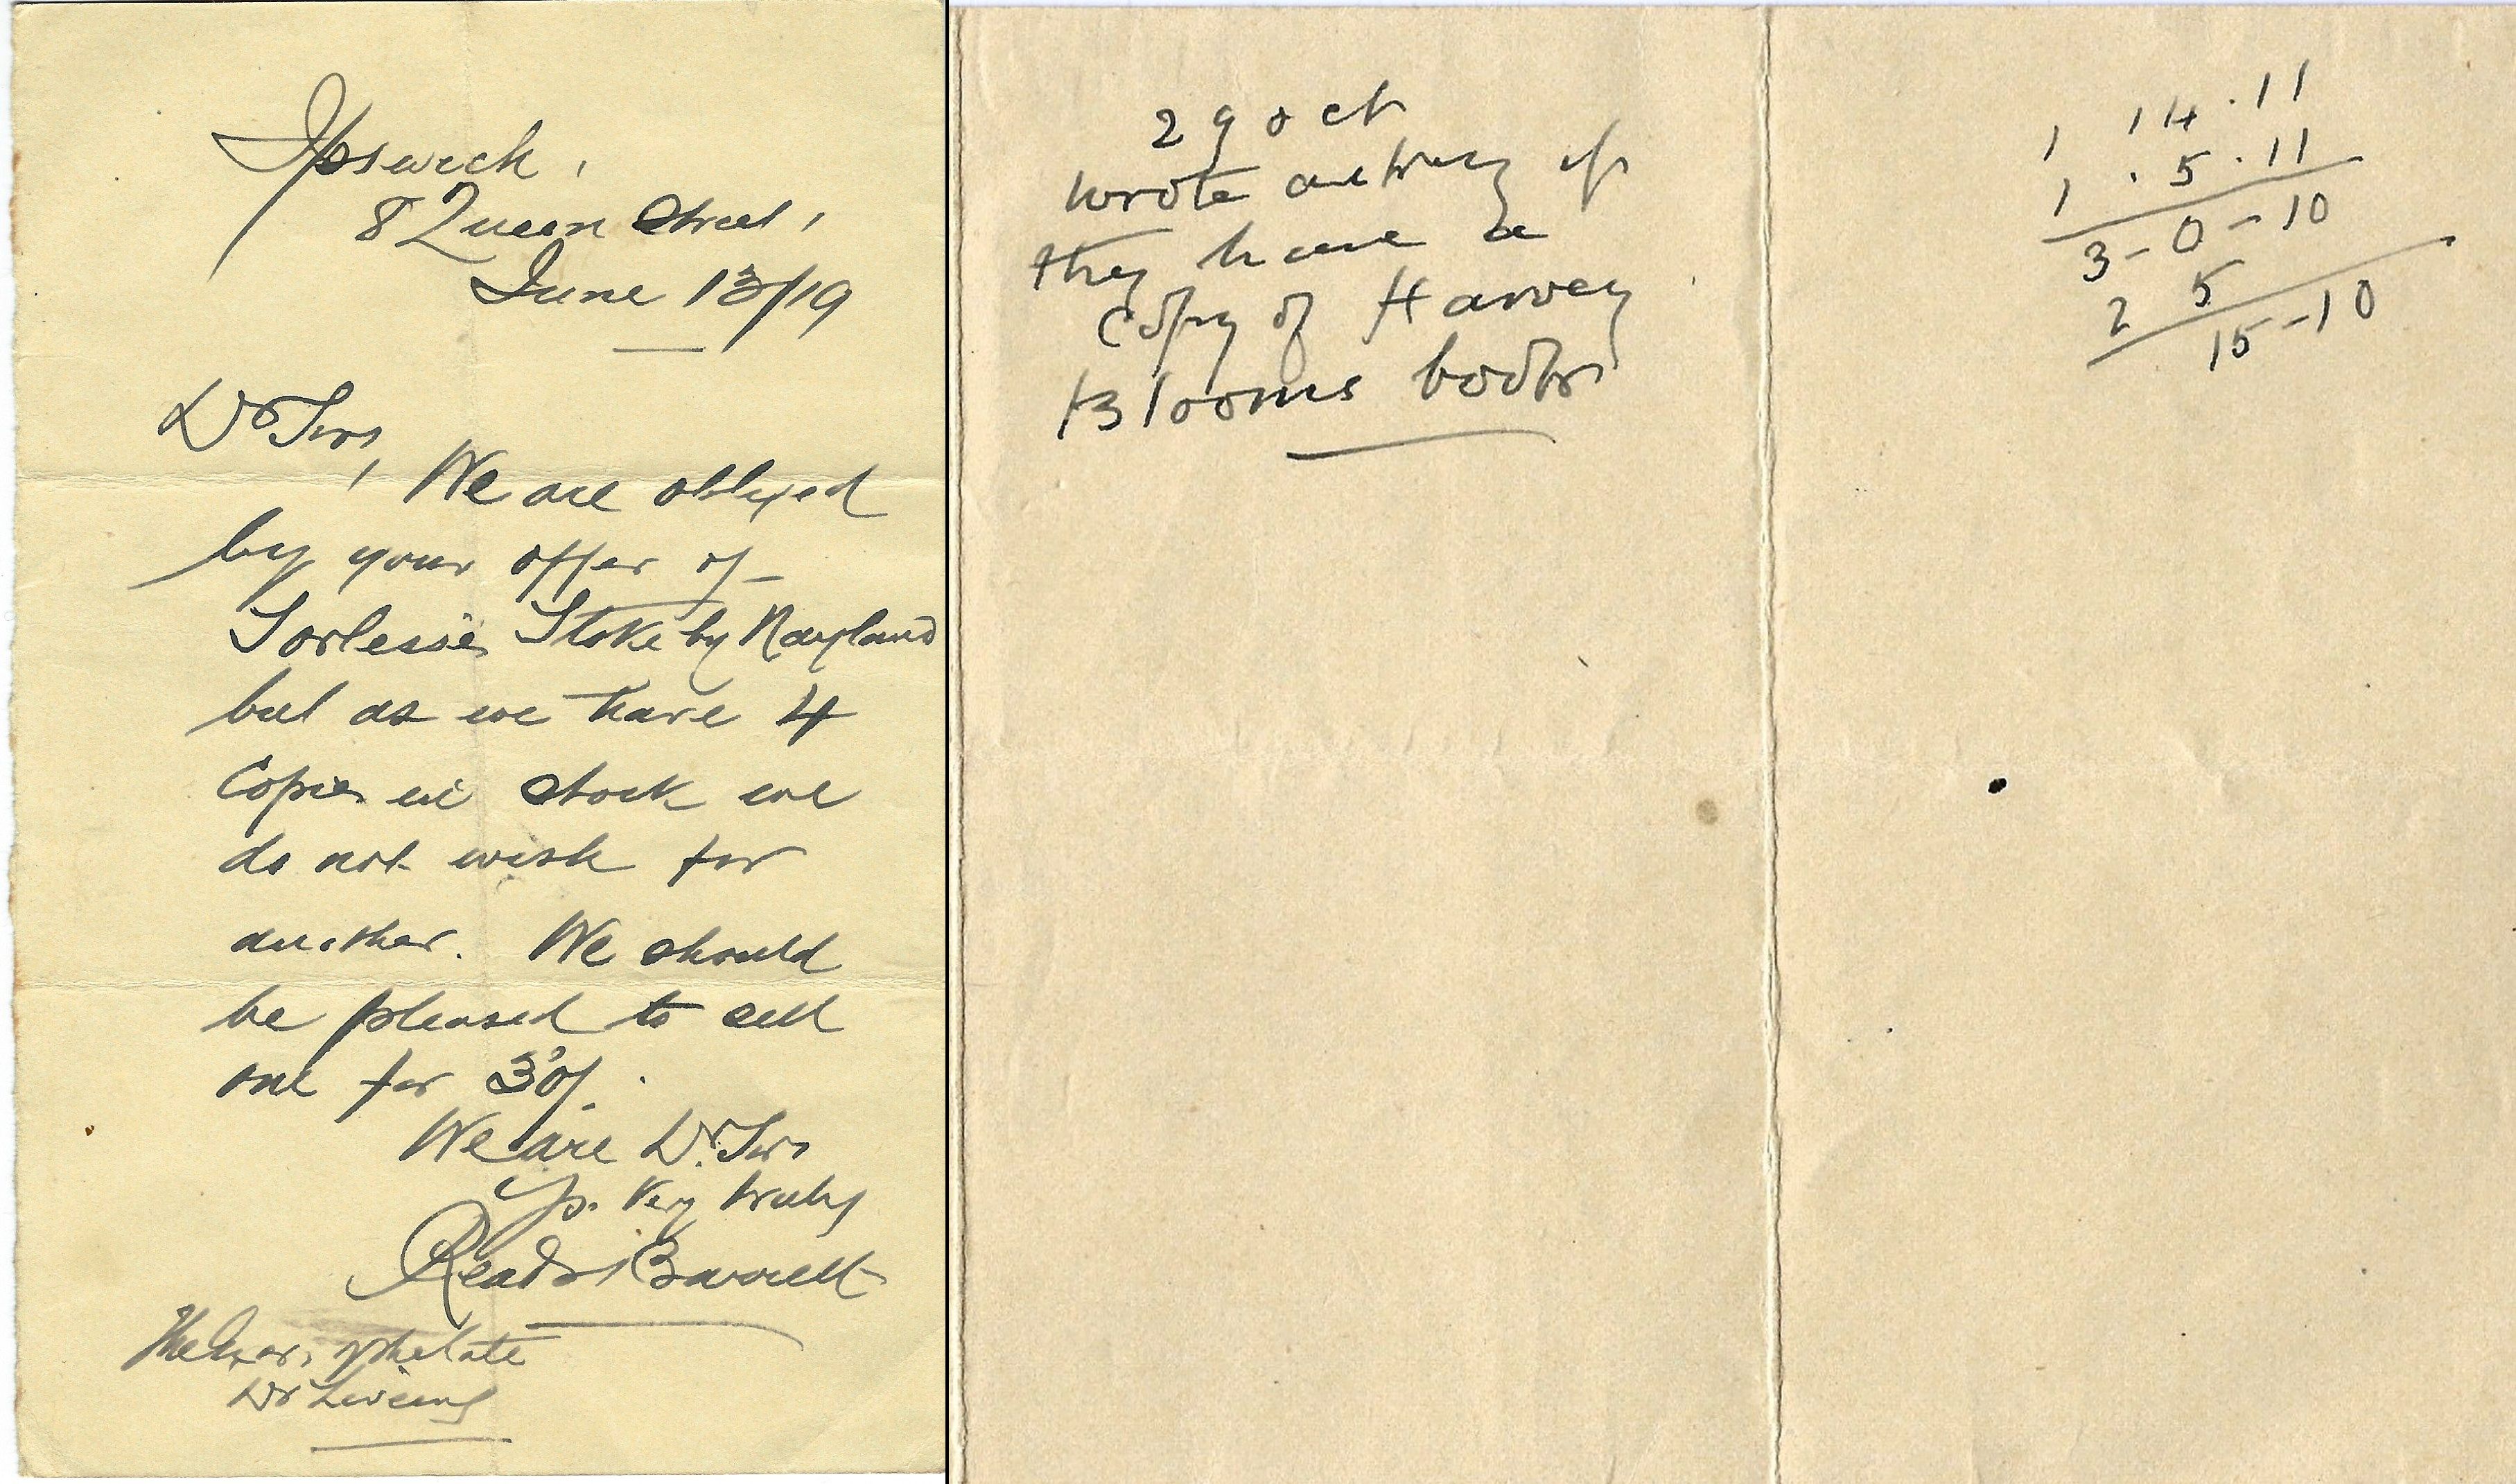 Ipswich,
8 Queen Street,
June 13/19
Dr Sirs,
We are obliged
by your offer of
Torlesse's Stoke by Nayland
but as we have 4
Copies in stock we
do not wish for
another. We should
be pleased to sell
one for 3/-
We are Dr. Sirs
Yrs. Very truly
Read & Barrett
The Exors. of the late
Dr Liveing
29 oct
wrote asking if
they have a
copy of Harvey
Blooms books
1 14 . 11
1 . 5 . 11
3 - 0 - 10
2 5
15 - 10